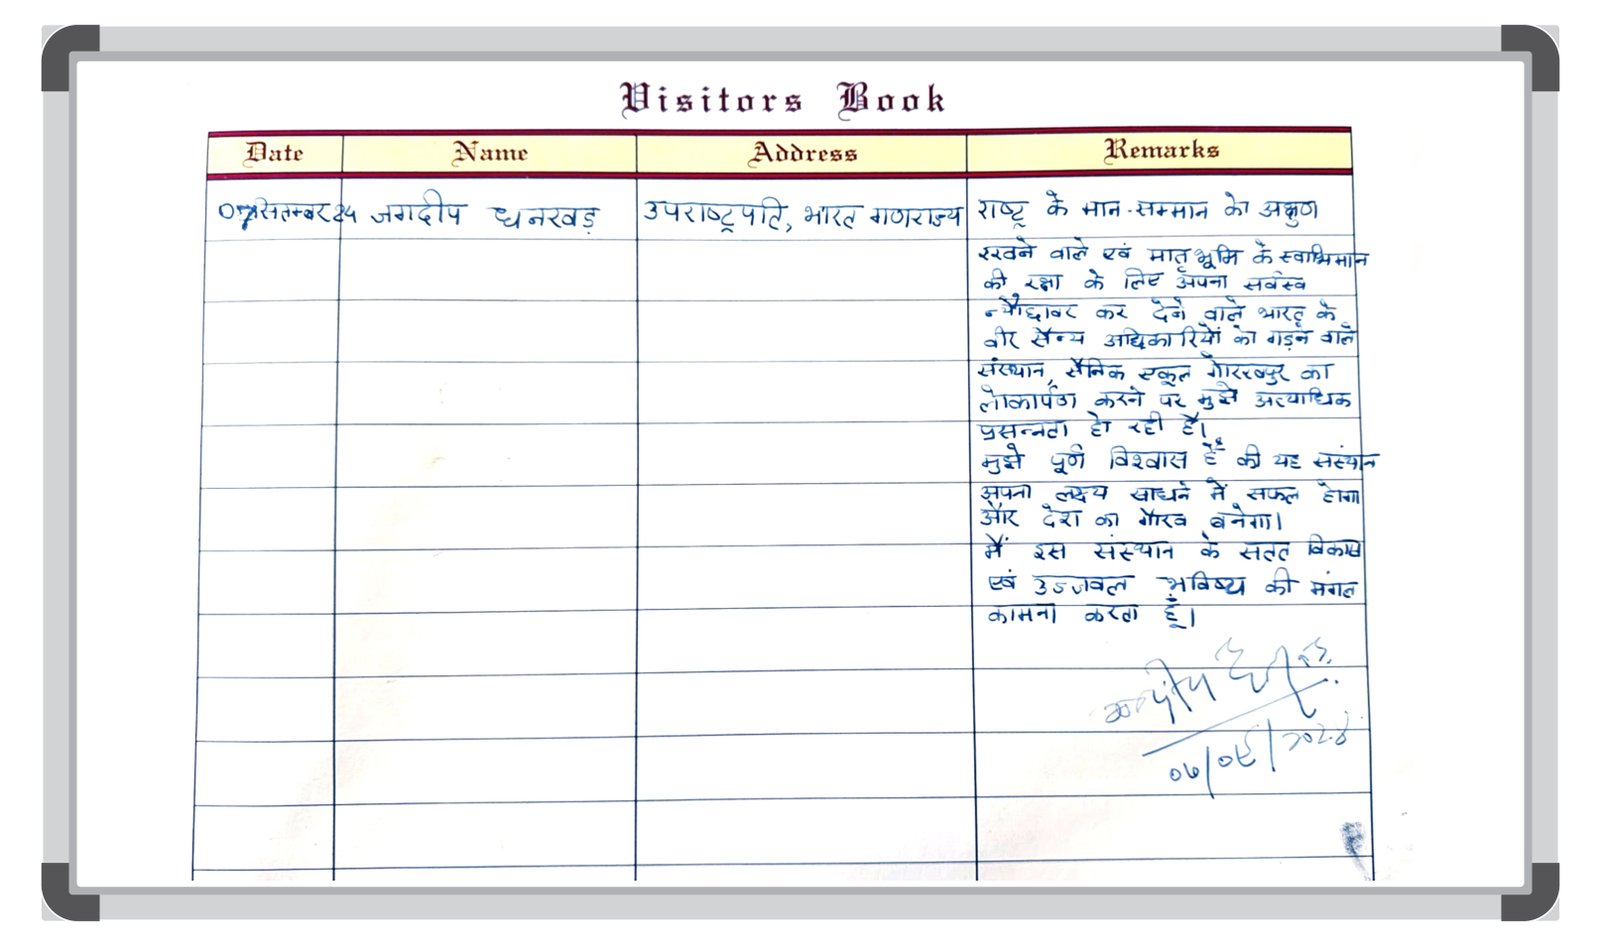 Visitors Book
Date Name Address Remarks
07 सितम्बर 24 जगदीप धनखड़ उपराष्ट्रपति, भारत गणराज्य राष्ट्र के मान-सम्मान को अक्षुण
रखने वाले एवं मातृभूमि के स्वाभिमान
की रक्षा के लिए अपना सर्वस्व
न्यौछावर कर देने वाले भारत के
वीर सैन्य अधिकारियों को गड़ने वाले
संस्थान, सैनिक स्कूल गोरखपुर का
लोकार्पण करने पर मुझे अत्याधिक
प्रसन्नता हो रही है।
मुझे पूर्ण विश्वास है की यह संस्थान
अपना लक्ष्य साधने में सफल होगा
और देश का गौरव बनेगा।
मैं इस संस्थान के सतत विकास
एवं उज्जवल भविष्य की मंगल
कामना करता हूँ।
जगदीप धनखड़
०७/०९/२०२४